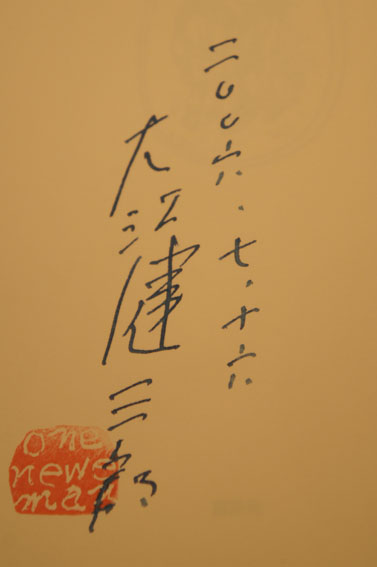 二〇〇六・七・十六
大江健三郎
one
news
man